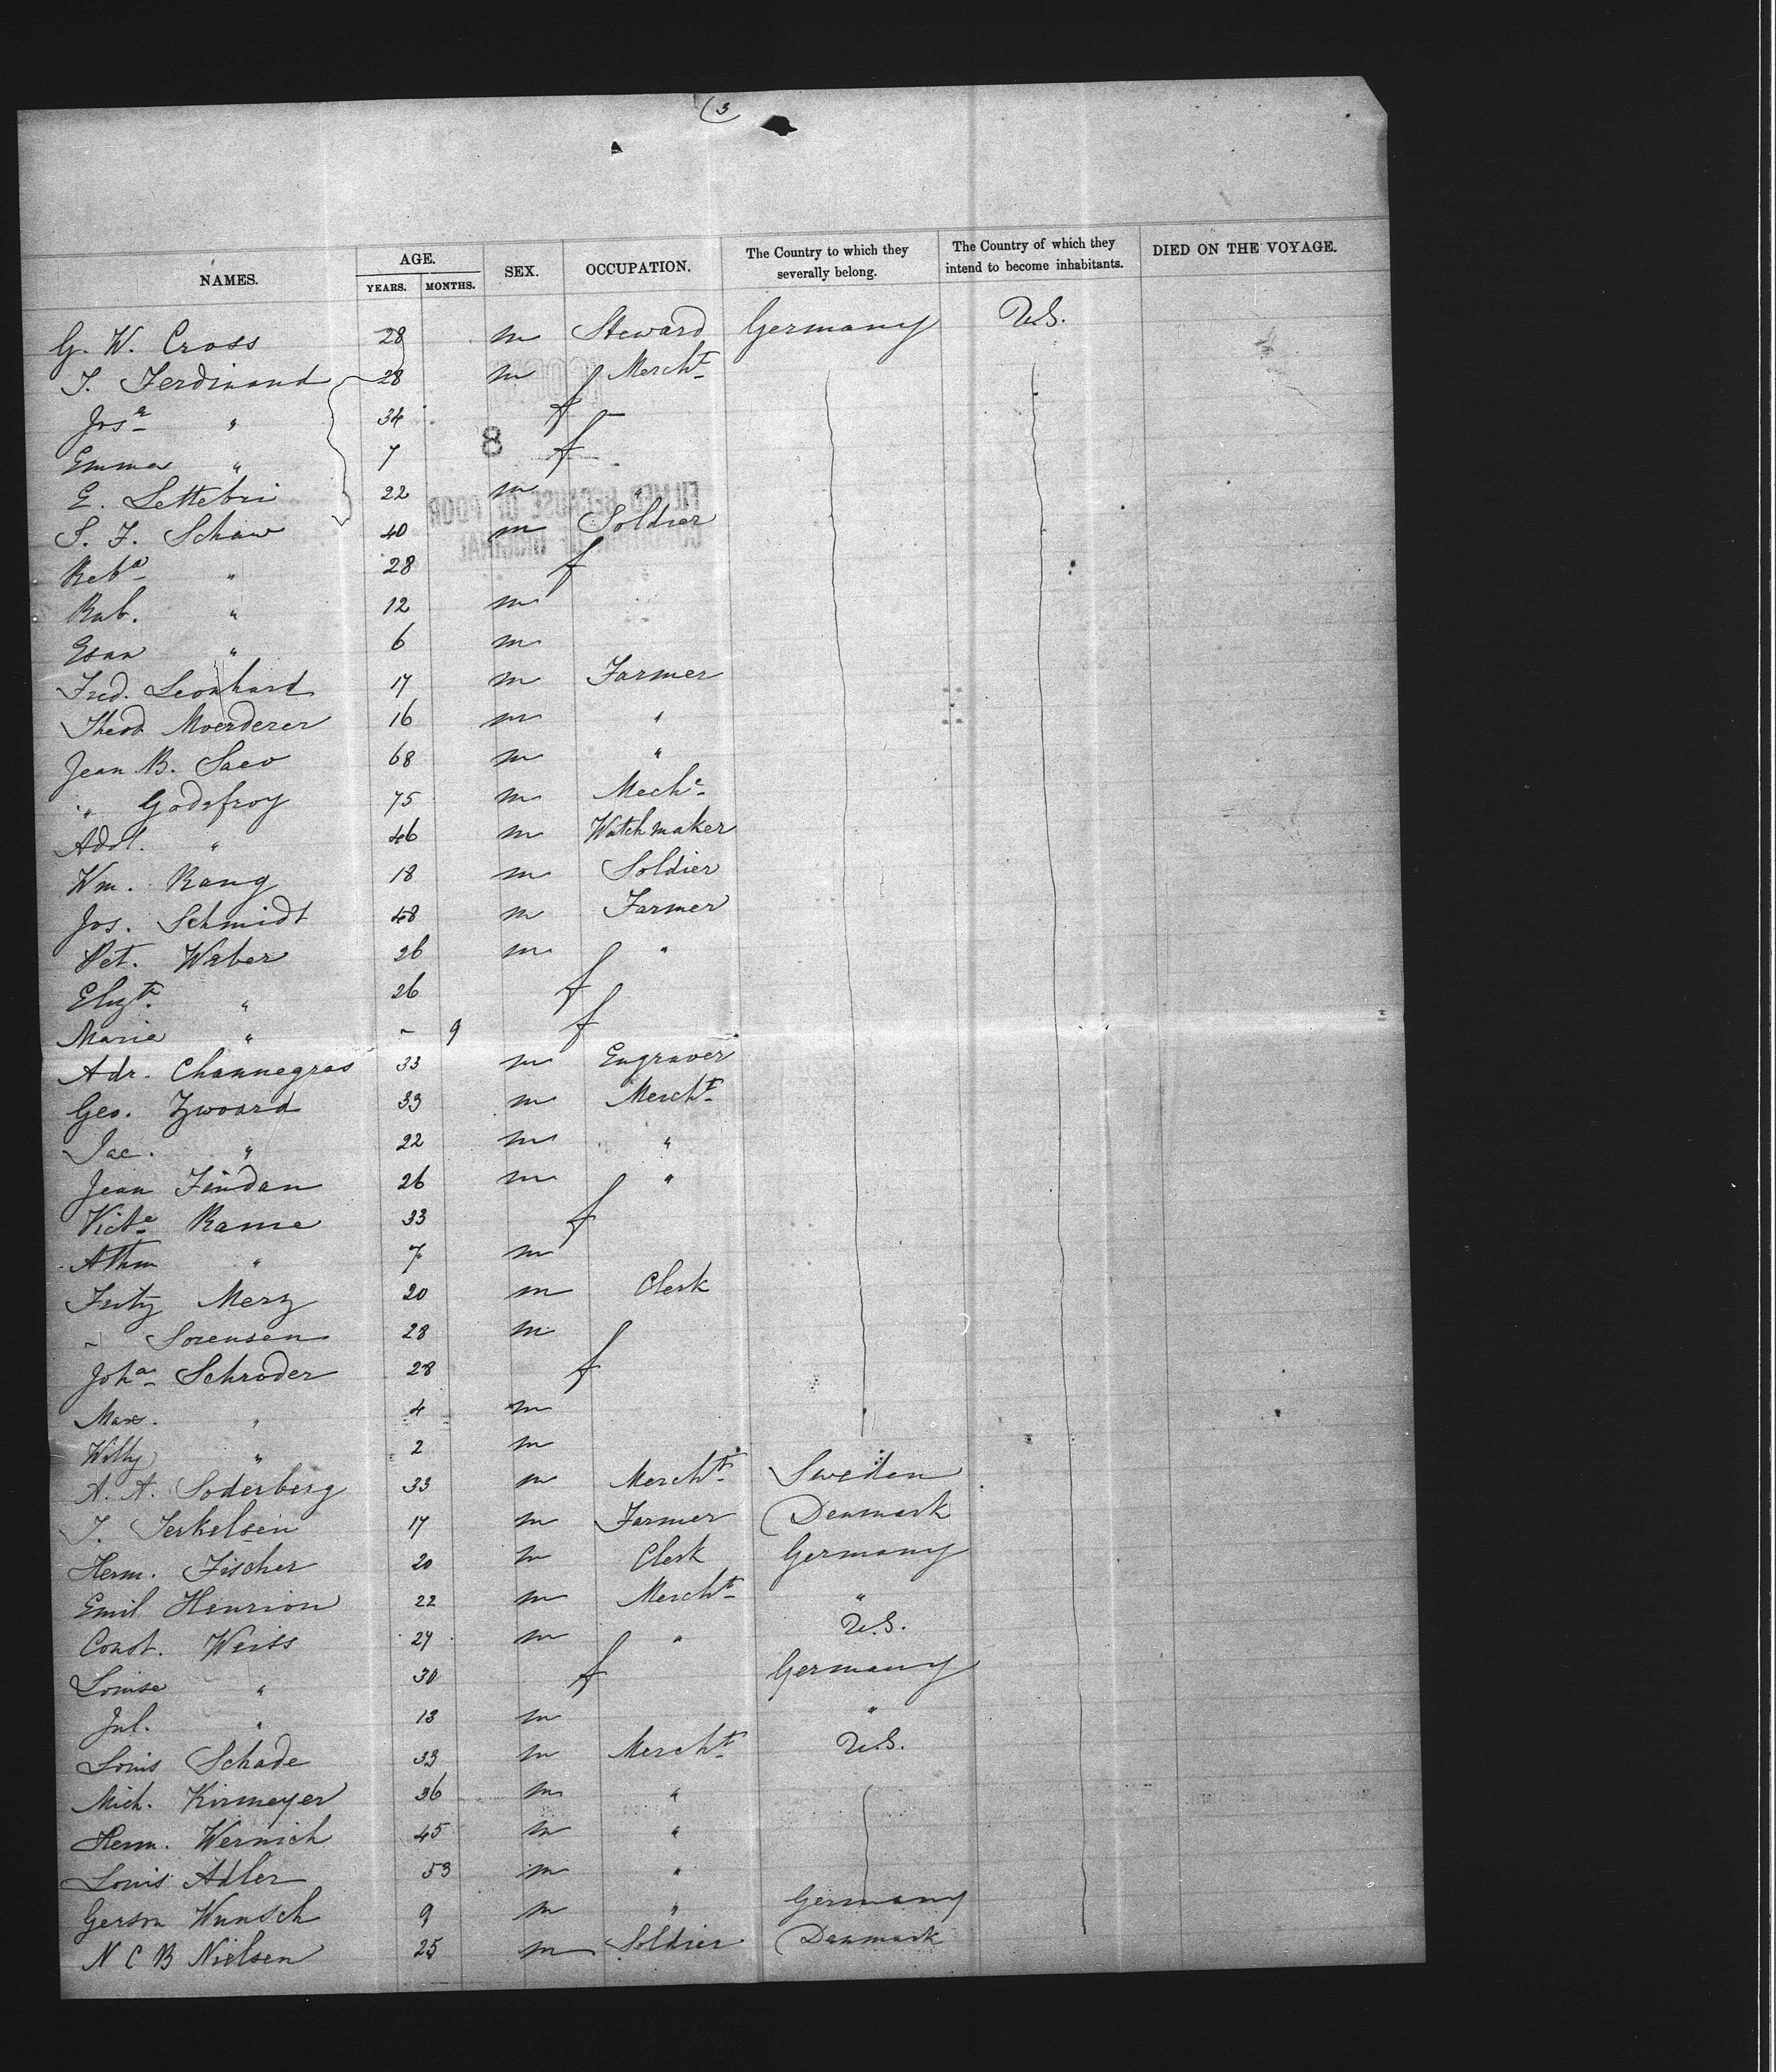 (3
NAMES. AGE. YEARS. MONTHS. SEX. OCCUPATION. The Country to which they severally belong. The Country of which they intend to become inhabitants. DIED ON THE VOYAGE.
G. W. Cross 28 m Steward Germany U.S.
T. Ferdinand 28 m Mercht
Josa " 34 f
Emma " 7 f
8
E. Lettebri 22 m "
FILMED BECAUSE OF POOR
S. F. Schaw 40 m Soldier
CONDITION OF ORIGINAL
Reba " 28 f
Rub. " 12 m
Esau " 6 m
Fred. Leonhard 17 m Farmer
Theod Moerderer 16 m "
Jean B. Saev 68 m "
" Godefroy 75 m Mech
Adol. " 46 m Watchmaker
Wm. Rang 18 m Soldier
Jos. Schmidt 48 m Farmer
Pet. Weber 26 m "
Elizth. " 26 f
Marie " - 9 f
Adr. Channegras 33 m Engraver
Geo. Zwoard 33 m Mercht
Jac. " 22 m "
Jean Findan 26 m "
Victe Rame 33 f
Athm " 7 m
Fritz Merz 20 m Clerk
- Sorensen 28 m
Joha Schroder 28 f
Max. " 4 m
Willy " 2 m
A. A. Soderberg 33 m Mercht Sweden
T. Terkelsen 17 m Farmer Denmark
Herm. Fischer 20 m Clerk Germany
Emil Henrion 22 m Mercht "
Const. Weiss 24 m " U.S.
Louise " 30 f Germany
Jul. " 13 m "
Louis Schade 33 m Mercht U.S.
Mich. Kirmeyer 36 m "
Herm. Wernich 45 m "
Louis Adler 53 m "
Gerson Wunsch 9 m " Germany
N C B Nielsen 25 m Soldier Denmark